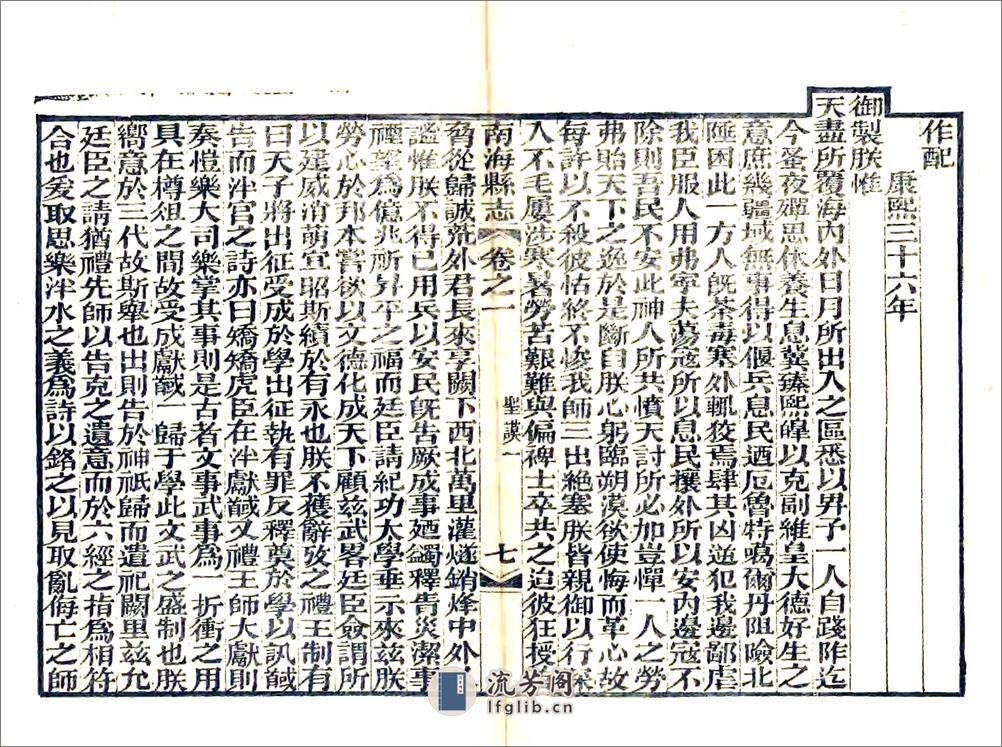 作配
康熙三十六年
御製朕惟
天盡所覆海內外日月所出入之區悉以畀予一人自踐阼迄
今蚤夜殫思休養生息冀臻熙皞以克副維皇大德好生之
意庶幾疆域無事得以偃兵息民迺厄魯特噶爾丹阻險北
陲困此一方人旣荼毒塞外輒狡焉肆其凶逆犯我邊鄙虐
我臣服人用弗寧夫蕩寇所以息民攘外所以安內邊寇不
除則吾民不安此神人所共憤天討所必加豈憚一人之勞
弗貽天下之逸於是斷自朕心躬臨朔漠欲使悔而革心故
每許以不殺彼怙終不悛我師三出絕塞朕皆親御以行深
入不毛屢涉寒暑勞苦艱難與偏裨士卒共之迨彼狂授首
南海縣志 卷之一 聖謨一 七
脅從歸誠荒外君長來享闕下西北萬里灌燧銷烽中外
謐惟朕不得已用兵以安民旣告厥成事廼蠲釋眚災潔事
禋望為億兆所昇平之福而廷臣請紀功太學垂示來茲朕
勞心於邦本嘗欲以文德化成天下顧茲武畧廷臣僉謂所
以建威消萌宣昭斯績於有永也朕不獲辭攷之禮王制有
曰天子將出征受成於學出征執有罪反釋奠於學以訊馘
告而泮宮之詩亦曰矯矯虎臣在泮獻馘又禮王師大獻則
奏愷樂大司樂掌其事則是古者文事武事為一折衝之用
具在樽俎之間故受成獻馘一歸于學此文武之盛制也朕
嚮意於三代故斯舉也出則告於神祇歸而遣祀闕里茲允
廷臣之請猶禮先師以告克之遺意而於六經之指為相符
合也爰取思樂泮水之義為詩以銘之以見取亂侮亡之師
流芳阁
lfglib.cn